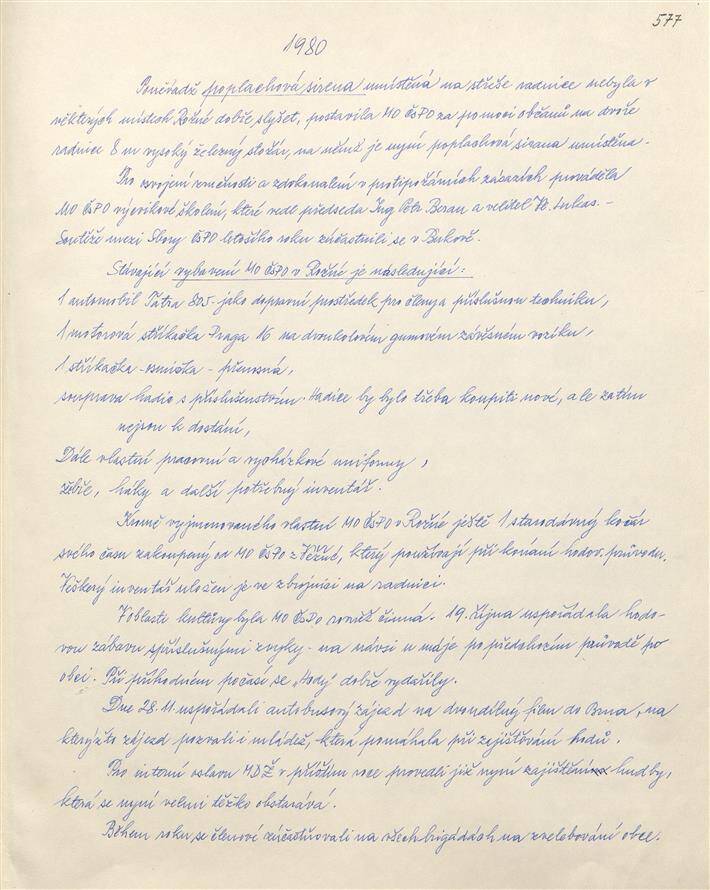 577
1980
Poněvadž poplachová sirena umístěná na střeše radnice nebyla v
některých místech Rožné dobře slyšet, postavila MO ČSPO za pomoci občanů na dvoře
radnice 8 m vysoký železný stožár, na němž je nyní poplachová sirena umístěna.
Pro osvojení zručnosti a zdokonalení v protipožárních zásazích prováděla
MO ČSPO výcvikové školení, které vedl předseda Ing Petr Beran a velitel Lukas. -
Soutěže mezi Sbory ČSPO letošího roku zúčastnili se v Bukově.
Stávající vybavení MO ČSPO v Rožné je následující:
1 automobil Tatra 805 - jako dopravní prostředek pro členy a příslušnou techniku,
1 motorová stříkačka Praga 16 na dvoukolovém gumovém závěsném vozíku,
1 stříkačka - osmička - přenosná,
souprava hadic s příslušenstvím. Hadice by bylo třeba koupiti nové, ale zatím
nejsou k dostání,
Dále vlastní pracovní a vycházkové uniformy,
žebře, háky a další potřebný inventář.
Kromě vyjmenovaného vlastní MO ČSPO v Rožné ještě 1 starodávný kočár
svého času zakoupený od MO ČSPO z Věžné, který používají při konání hodov. průvodu.
Veškerý inventář uložen je ve zbrojnici na radnici.
V oblasti kultury byla MO ČSPO rovněž činná. 19. října uspořádala hodo-
vou zábavu s příslušnými zvyky - na návsi u máje po předchozím průvodě po
obci. Při příhodném počasí se "Hody" dobře vydařily.
Dne 28.11 uspořádali autobusový zájezd na dvoudílný film do Brna, na
kterýžto zájezd pozvali i mládež, která pomáhala při zajišťování hodů.
Pro interní oslavu MDŽ v příštím roce provedli již nyní zajištění hudby,
která se nyní velmi těžko obstarává.
Během roku se členové zúčastňovali na všech brigádách na zvelebování obce.